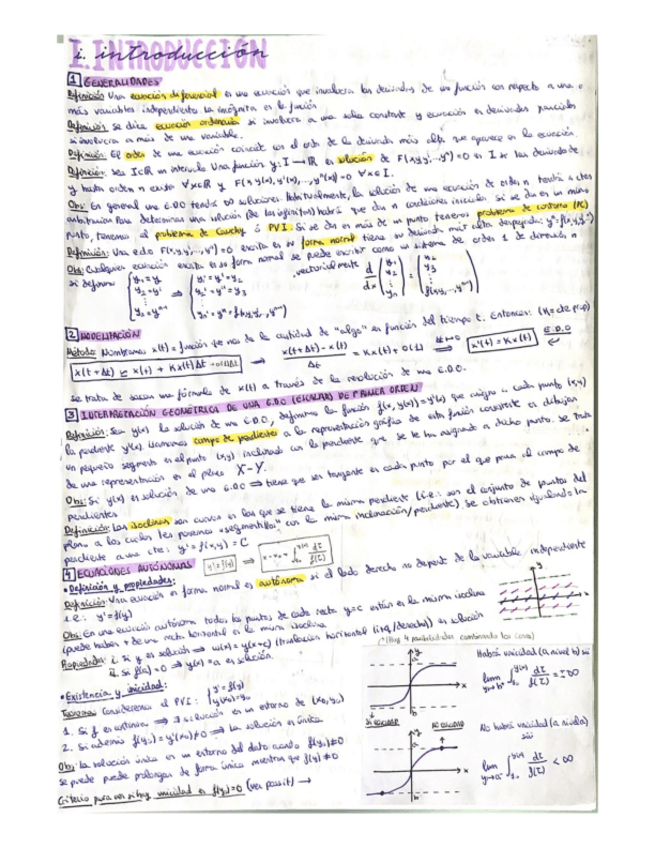 I. INTRODUCCIÓN
i. introducción
1 GENERALIDADES
Definición: Una ecuación diferencial es una ecuación que involucra las derivadas de una función con respecto a una o
más variables independientes. La incógnita es la función.
Definición: se dice ecuación ordinaria si involucra a una sola constante y ecuación en derivadas parciales
si involucra a más de una variable.
Definición: El orden de una ecuación coincide con el orden de la derivada más alta que aparece en la ecuación.
Definición: Sea I⊂ℝ un intervalo. Una función y: I → ℝ es solución de F(x,y,y',...,yⁿ)=0 en I si
y hasta orden n existe ∀x∈I y F(x,y(x),y'(x),...,yⁿ(x))=0 ∀x∈I.
Obs: En general una EDO tendrá ∞ soluciones. Habitualmente, la solución de una ecuación de orden n tendrá n ctes
arbitrarias. Para determinar una solución (de las infinitas) habrá que dar n condiciones iniciales. Si se dan en un mismo
punto, tenemos el problema de Cauchy ó PVI. Si se dan en más de un punto tenemos problema de contorno (PC)
Definición: Una edo F(x,y,y',...,yⁿ)=0 escrita en su forma normal tiene su derivada más alta despejada:
Obs: Cualquier ecuación escrita en su forma normal se puede escribir como un sistema de orden 1 de dimensión n
si definimos
vectorialmente
2 MODELIZACIÓN
Método: Nombramos x(t) = función que nos da la cantidad de "algo" en función del tiempo t. Entonces: (K = cte p.p)
x(t+Δt) ≃ x(t) + Kx(t)Δt ⇒ (x(t+Δt) - x(t))/Δt = Kx(t) + O(1) Δt→0 ⇒ x'(t) = Kx(t) E.D.O
se trata de sacar una fórmula de x(t) a través de la resolución de una E.D.O.
3 INTERPRETACIÓN GEOMÉTRICA DE UNA E.D.O (ESCALAR) DE PRIMER ORDEN
Definición: Sea y(x) la solución de una E.D.O, definimos la función f(x,y(x))=y'(x) que asigna a cada punto (x,y)
la pendiente y'(x). Llamamos campo de pendientes a la representación gráfica de esta función consistente en dibujar
un pequeño segmento en el punto (x,y) inclinado con la pendiente que se le ha asignado a dicho punto. Se trata
de una representación en el plano X-Y.
Obs: Si y(x) es solución de una E.D.O ⇒ tiene que ser tangente en cada punto, por el que pasa al campo de
pendientes
Definición: Las isoclinas son curvas en las que se tiene la misma pendiente (i.e.: son el conjunto de puntos del
plano a los cuales les ponemos «segmentitos» con la misma inclinación/pendiente). Se obtienen igualando la
pendiente a una cte: y' = f(x,y) = C
4 ECUACIONES AUTÓNOMAS y'=f(y) ⇒
• Definición y propiedades:
Definición: Una ecuación en forma normal es autónoma si el lado derecho no depende de la variable independiente
i.e.: y'=f(y)
Obs: En una ecuación autónoma todos los puntos de cada recta y=c están en la misma isoclina
(puede haber + de una recta horizontal en la misma isoclina)
Propiedades: i. Si y es solución ⇒ u(x)=y(x+c) (traslación horizontal (izq/derecha)) es solución
ii. si f(a)=0 ⇒ y(x)=a es solución.
• Existencia y unicidad:
Teorema: Consideremos el PVI: { y'=f(y) y(x₀)=y₀
1. Si f es continua ⇒ ∃ solución en un entorno de (x₀,y₀)
2. Si además f(y₀)=y'(x₀)≠0 ⇒ La solución es única
Obs: La solución única en un entorno del dato cuando f(y₀)≠0
se puede puede prolongar de forma única mientras que f(y)≠0
Criterio para ver si hay unicidad en f(y₀)=0 (ver pasuit) →
*(Hay 4 posibilidades combinando los casos)
Habrá unicidad (a nivel b) si
lim y→b⁻ ∫ dτ/f(τ) = ±∞
No habrá unicidad (a nivel a)
si
lim y→a⁻ ∫ dτ/f(τ) < ∞
SI UNICIDAD
NO UNICIDAD